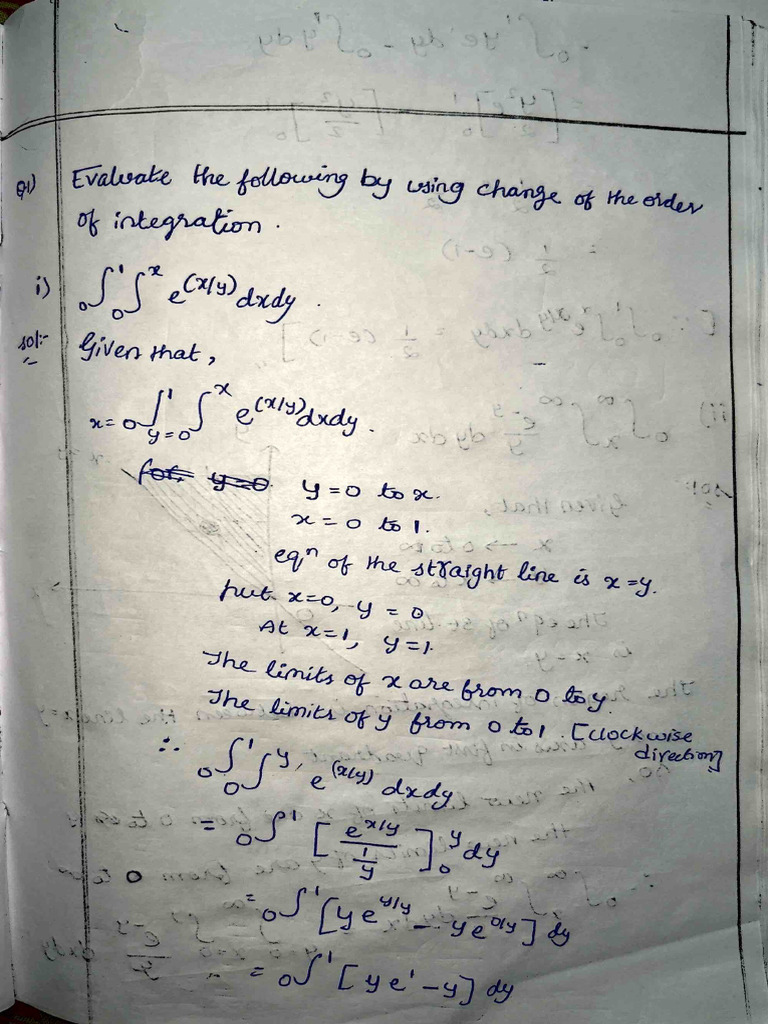 Q1) Evaluate the following by using change of the order
of integration.
i) ₀∫¹ ₀∫ˣ e^(x/y) dxdy.
sol:- Given that,
x=0∫¹ y=0∫ˣ e^(x/y) dxdy.
y=0 to x.
x=0 to 1.
eqⁿ of the straight line is x=y.
put x=0, y=0
At x=1, y=1.
The limits of x are from 0 to y.
The limits of y from 0 to 1. [clockwise
direction]
∴ ₀∫¹ ₀∫ʸ e^(x/y) dxdy
= ₀∫¹ [e^(x/y) / (1/y)]₀ʸ dy
= ₀∫¹ [ye^(y/y) - ye^(0/y)] dy
= ₀∫¹ [ye¹ - y] dy